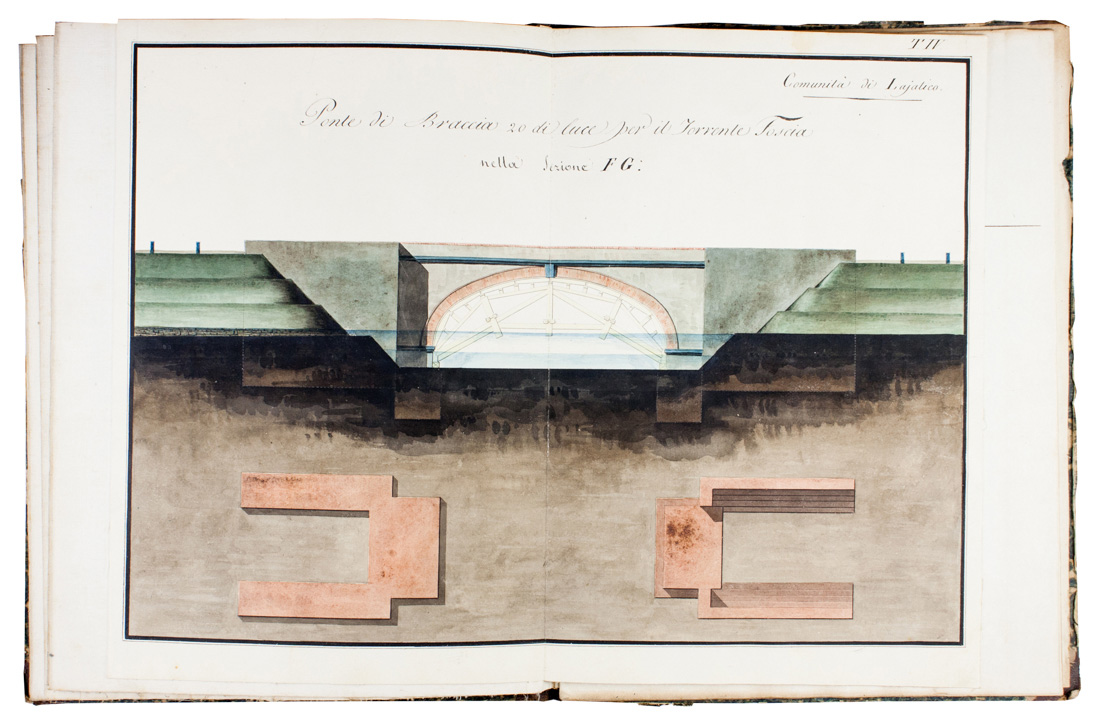 T IV
Comunità di Lajatico.
Ponte di Braccia 20 di luce per il Torrente Toscia
nella Sezione FG: